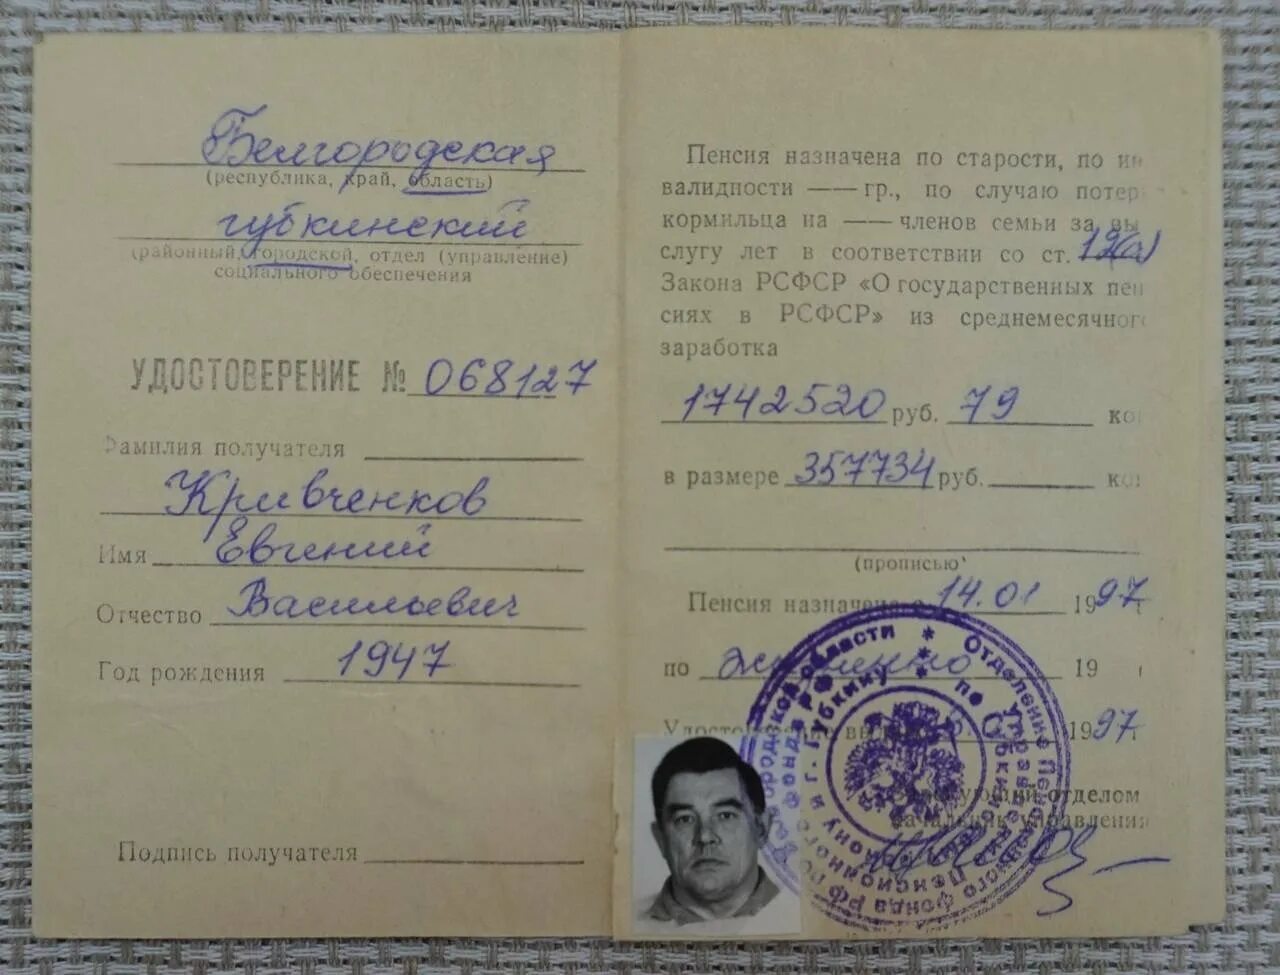 Белгородская
(республика, край, область)
губкинский
(районный, городской, отдел (управление)
социального обеспечения
УДОСТОВЕРЕНИЕ № 068127
Фамилия получателя
Кривченков
Имя Евгений
Отчество Васильевич
Год рождения 1947
Подпись получателя
Пенсия назначена по старости, по ин
валидности —— гр., по случаю потер
кормильца на —— членов семьи за вы
слугу лет в соответствии со ст. 12(а)
Закона РСФСР «О государственных пен
сиях в РСФСР» из среднемесячног
заработка
1742520 руб. 79 ко
в размере 357734 руб. ко
(прописью)
Пенсия назначена с 14.01 1997 г
по пожизненно 19 г
Удостоверение выдано 1997 г
отделом
начальник управления
* Отделение Пенсионного фонда РФ
по г. Губкину и Губкинскому